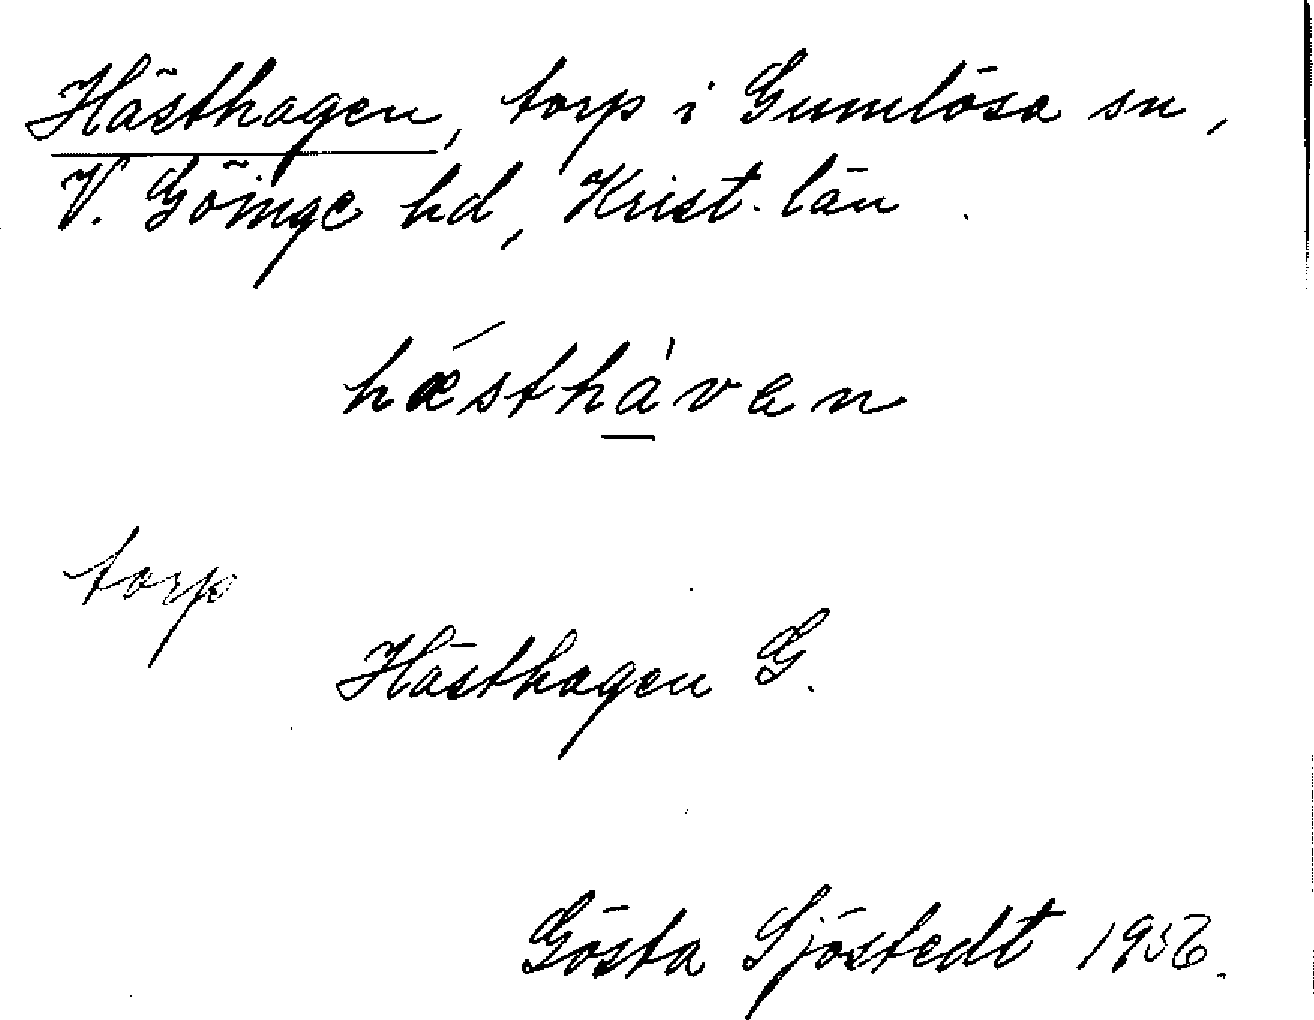 Hästhagen, torp i Gumlösa sn,
V. Göinge hd, Krist. län.
hǽsthàvan
torp
Hästhagen G.
Gösta Sjöstedt 1936.